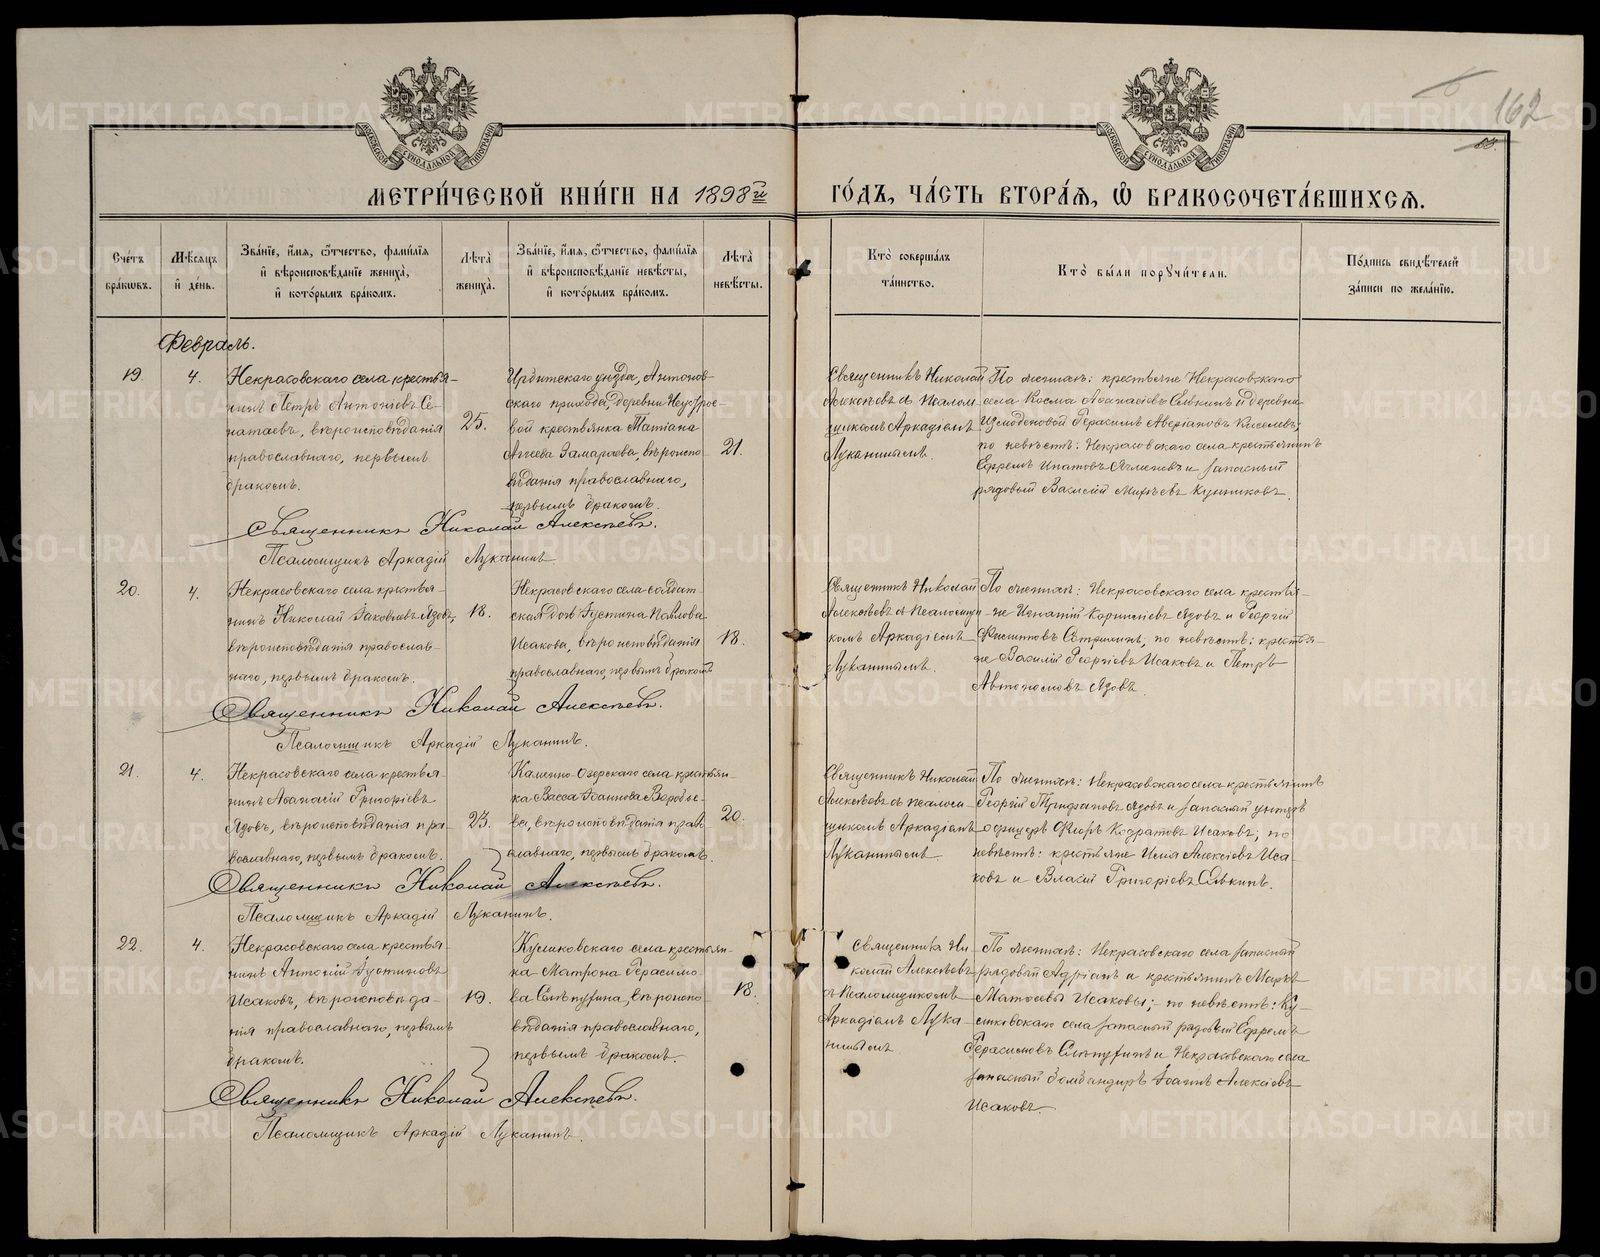 162
55.
МОСКОВСКОЙ СѴНОДАЛЬНОЙ ТИПОГРАФІИ
МОСКОВСКОЙ СѴНОДАЛЬНОЙ ТИПОГРАФІИ
МЕТРИ́ЧЕСКОЙ КНИ́ГИ НА 1898й ГО́ДЪ, ЧА́СТЬ ВТОРА́Ѧ, Ѽ БРАКОСОЧЕТА́ВШИХСѦ.
Сче́тъ бра́кѡвъ.
Мѣ́сѧцъ и҆ де́нь.
Зва́нїе, и҆́мѧ, ѻ҆́тчество, фами́лїѧ и҆ вѣроисповѣ́данїе жениха̀, и҆ кото́рымъ бра́комъ.
Лѣ́та̀ жениха̀.
Зва́нїе, и҆́мѧ, ѻ҆́тчество, фами́лїѧ и҆ вѣроисповѣ́данїе невѣ́сты, и҆ кото́рымъ бра́комъ.
Лѣ́та̀ невѣ́сты.
Кто̀ соверша́лъ та́инство.
Кто̀ бы́ли порꙋчи́тели.
По́дпись свидѣ́телей за́писи по жела́нїю.
Февраль.
19.
4.
Некрасовскаго села крестья-
нинъ Петръ Антоніевъ Се-
натаевъ, вѣроисповѣданія
православнаго, первымъ
бракомъ.
25.
Ирбитскаго уѣзда, Антонов-
скаго прихода, деревни
вой крестьянка Татіана
Аггеева Замараева, вѣроиспо-
вѣданія православнаго,
первымъ бракомъ.
21.
Священникъ Николай
Алексѣевъ съ псалом-
щикомъ Аркадіемъ
Луканинымъ.
По женихѣ: крестьяне Некрасовскаго
села Косма Аѳанасіевъ Сѣвкинъ и деревни
Измоденовой Герасимъ Аверіановъ Киселевъ;
по невѣстѣ: Некрасовскаго села крестьянинъ
Ефремъ Ипатовъ и запасный
рядовый Василій
Священникъ Николай Алексѣевъ.
Псаломщикъ Аркадій Луканинъ
20.
4.
Некрасовскаго села крестья-
нинъ Николай Іаковлевъ Ядовъ,
вѣроисповѣданія православ-
наго, первымъ бракомъ.
18.
Некрасовскаго села солдат-
ская дочь Іустина Павлова
Исакова, вѣроисповѣданія
православнаго, первымъ бракомъ
18.
Священникъ Николай
Алексѣевъ съ псаломщи-
комъ Аркадіемъ
Луканинымъ.
По женихѣ: Некрасовскаго села крестья-
не Игнатій Корниліевъ Ядовъ и Георгій
по невѣстѣ: крестья-
не Василій Георгіевъ Исаковъ и Петръ
Автономовъ Ядовъ.
Священникъ Николай Алексѣевъ.
Псаломщикъ Аркадій Луканинъ.
21.
4.
Некрасовскаго села крестья-
нинъ Аѳанасій Григоріевъ
Ядовъ, вѣроисповѣданія пра-
вославнаго, первымъ бракомъ.
23.
Каменно-Озерскаго села крестьян-
ка Васса Іоаннова Воробье-
ва, вѣроисповѣданія право-
славнаго, первымъ бракомъ.
20.
Священникъ Николай
Алексѣевъ съ псалом-
щикомъ Аркадіемъ
Луканинымъ
По женихѣ: Некрасовскаго села крестьянинъ
Георгій Трифановъ Ядовъ и запасный унтеръ
офицеръ Фирсъ Кодратовъ Исаковъ; по
невѣстѣ: крестьяне Илія Алексіевъ Иса-
ковъ и Власій Григоріевъ Сѣвкинъ.
Священникъ Николай Алексѣевъ.
Псаломщикъ Аркадій Луканинъ.
22.
4.
Некрасовскаго села крестья-
нинъ Антоній Іустиновъ
Исаковъ, вѣроисповѣда-
нія православнаго, первымъ
бракомъ.
19.
Куликовскаго села крестьян-
ка Матрона Герасимо-
ва Слѣпухина, вѣроиспо-
вѣданія православнаго,
первымъ бракомъ.
18.
Священникъ Ни-
колай Алексѣевъ
съ псаломщикомъ
Аркадіемъ Лука-
нинымъ
По женихѣ: Некрасовскаго села запасный
рядовый Адріанъ и крестьянинъ Маркъ
Матѳіевы Исаковы; по невѣстѣ: Ку-
ликовскаго села запасный рядовый Ефремъ
Герасимовъ Слѣпухинъ и Некрасовскаго села
запасный бомбандиръ Іоаннъ Алексіевъ
Исаковъ.
Священникъ Николай Алексѣевъ.
Псаломщикъ Аркадій Луканинъ.
METRIKI.GASO-URAL.RU